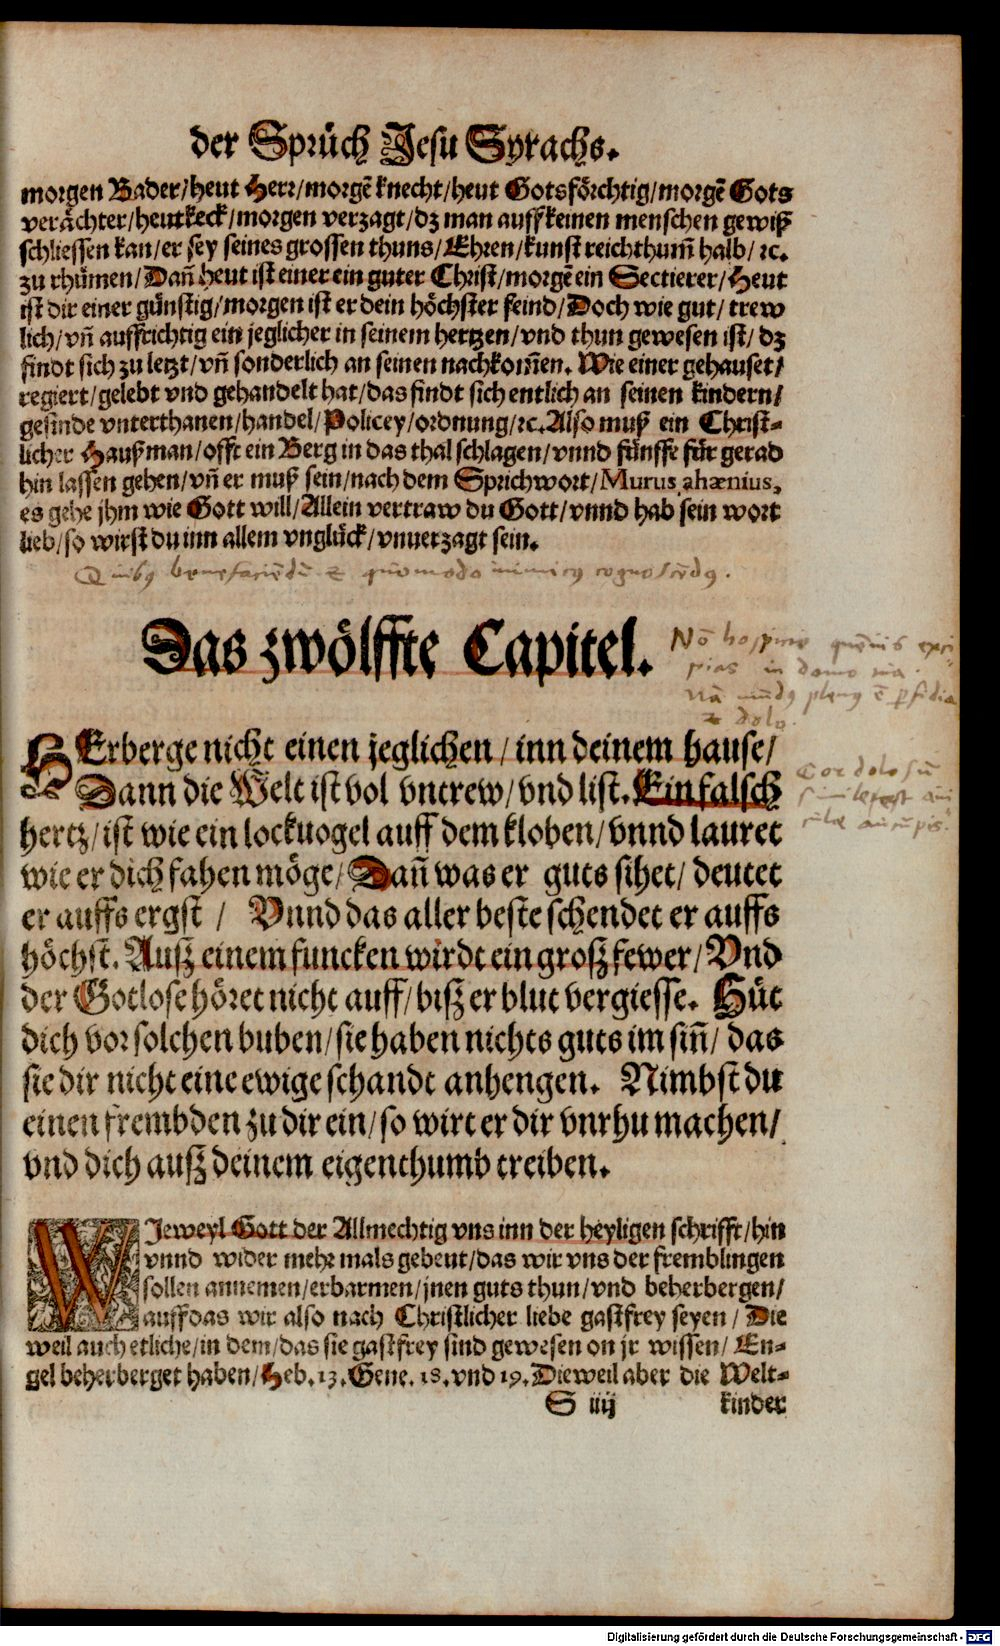 der Sprüch Jesu Syrachs.
morgen Bader/heut Herr/morgẽ knecht/heut Gotsförchtig/morgẽ Gots
verächter/heut keck/morgen verzagt/dz man auff keinen menschen gewiß
schliessen kan/er sey seines grossen thuns/Ehren/kunst reichthum̃ halb/ꝛc.
zu rhümen/Dañ heut ist einer ein guter Christ/morgẽ ein Sectierer/Heut
ist dir einer günstig/morgen ist er dein höchster feind/Doch wie gut/trew
lich/vñ auffrichtig ein jeglicher in seinem hertzen/vnd thun gewesen ist/dz
findt sich zu letzt/vñ sonderlich an seinen nachkom̃en. Wie einer gehauset/
regiert/gelebt vnd gehandelt hat/das findt sich entlich an seinen kindern/
gesinde vnterthanen/handel/Policey/ordnung/ꝛc. Also muß ein Christ-
licher Haußman/offt ein Berg in das thal schlagen/vnnd fünffe für gerad
hin lassen gehen/vñ er muß sein/nach dem Sprichwort/Murus ahænius,
es gehe jhm wie Gott will/Allein vertraw du Gott/vnnd hab sein wort
lieb/so wirst du inn allem vnglück/vnuerzagt sein.
Quibꝰ benefaciẽdũ & quomodo inimicꝰ cognoscẽdꝰ.
Das zwölffte Capitel.
Nõ hospicio quẽuis exci-
pias in domo tua.
nã mũdꝰ plenꝰ ẽ perfidia
& dolo.
HErberge nicht einen jeglichen/inn deinem hause/
Dann die Welt ist vol vntrew/vnd list. Ein falsch
hertz/ist wie ein lockuogel auff dem kloben/vnnd lauret
wie er dich fahen möge/Dañ was er guts sihet/deutet
er auffs ergst/ Vnnd das aller beste schendet er auffs
höchst. Ausz einem funcken wirdt ein grosz fewer/Vnd
der Gotlose höret nicht auff/bisz er blut vergiesse. Hüt
dich vor solchen buben/sie haben nichts guts im siñ/das
sie dir nicht eine ewige schandt anhengen. Nimbst du
einen frembden zu dir ein/so wirt er dir vnrhu machen/
vnd dich ausz deinem eigenthumb treiben.
Cor dolosũ
simile est aui
culæ aucupis.
WJeweyl Gott der Allmechtig vns inn der heyligen schrifft/hin
vnnd wider mehr mals gebeut/das wir vns der fremblingen
sollen annemen/erbarmen/jnen guts thun/vnd beherbergen/
auffdas wir also nach Christlicher liebe gastfrey seyen/Die
weil auch etliche/in dem/das sie gastfrey sind gewesen on jr wissen/En-
gel beherberget haben/Heb.13.Gene.18.vnd 19. Dieweil aber die Welt-
S iiij
kinder
Digitalisierung gefördert durch die Deutsche Forschungsgemeinschaft - DFG